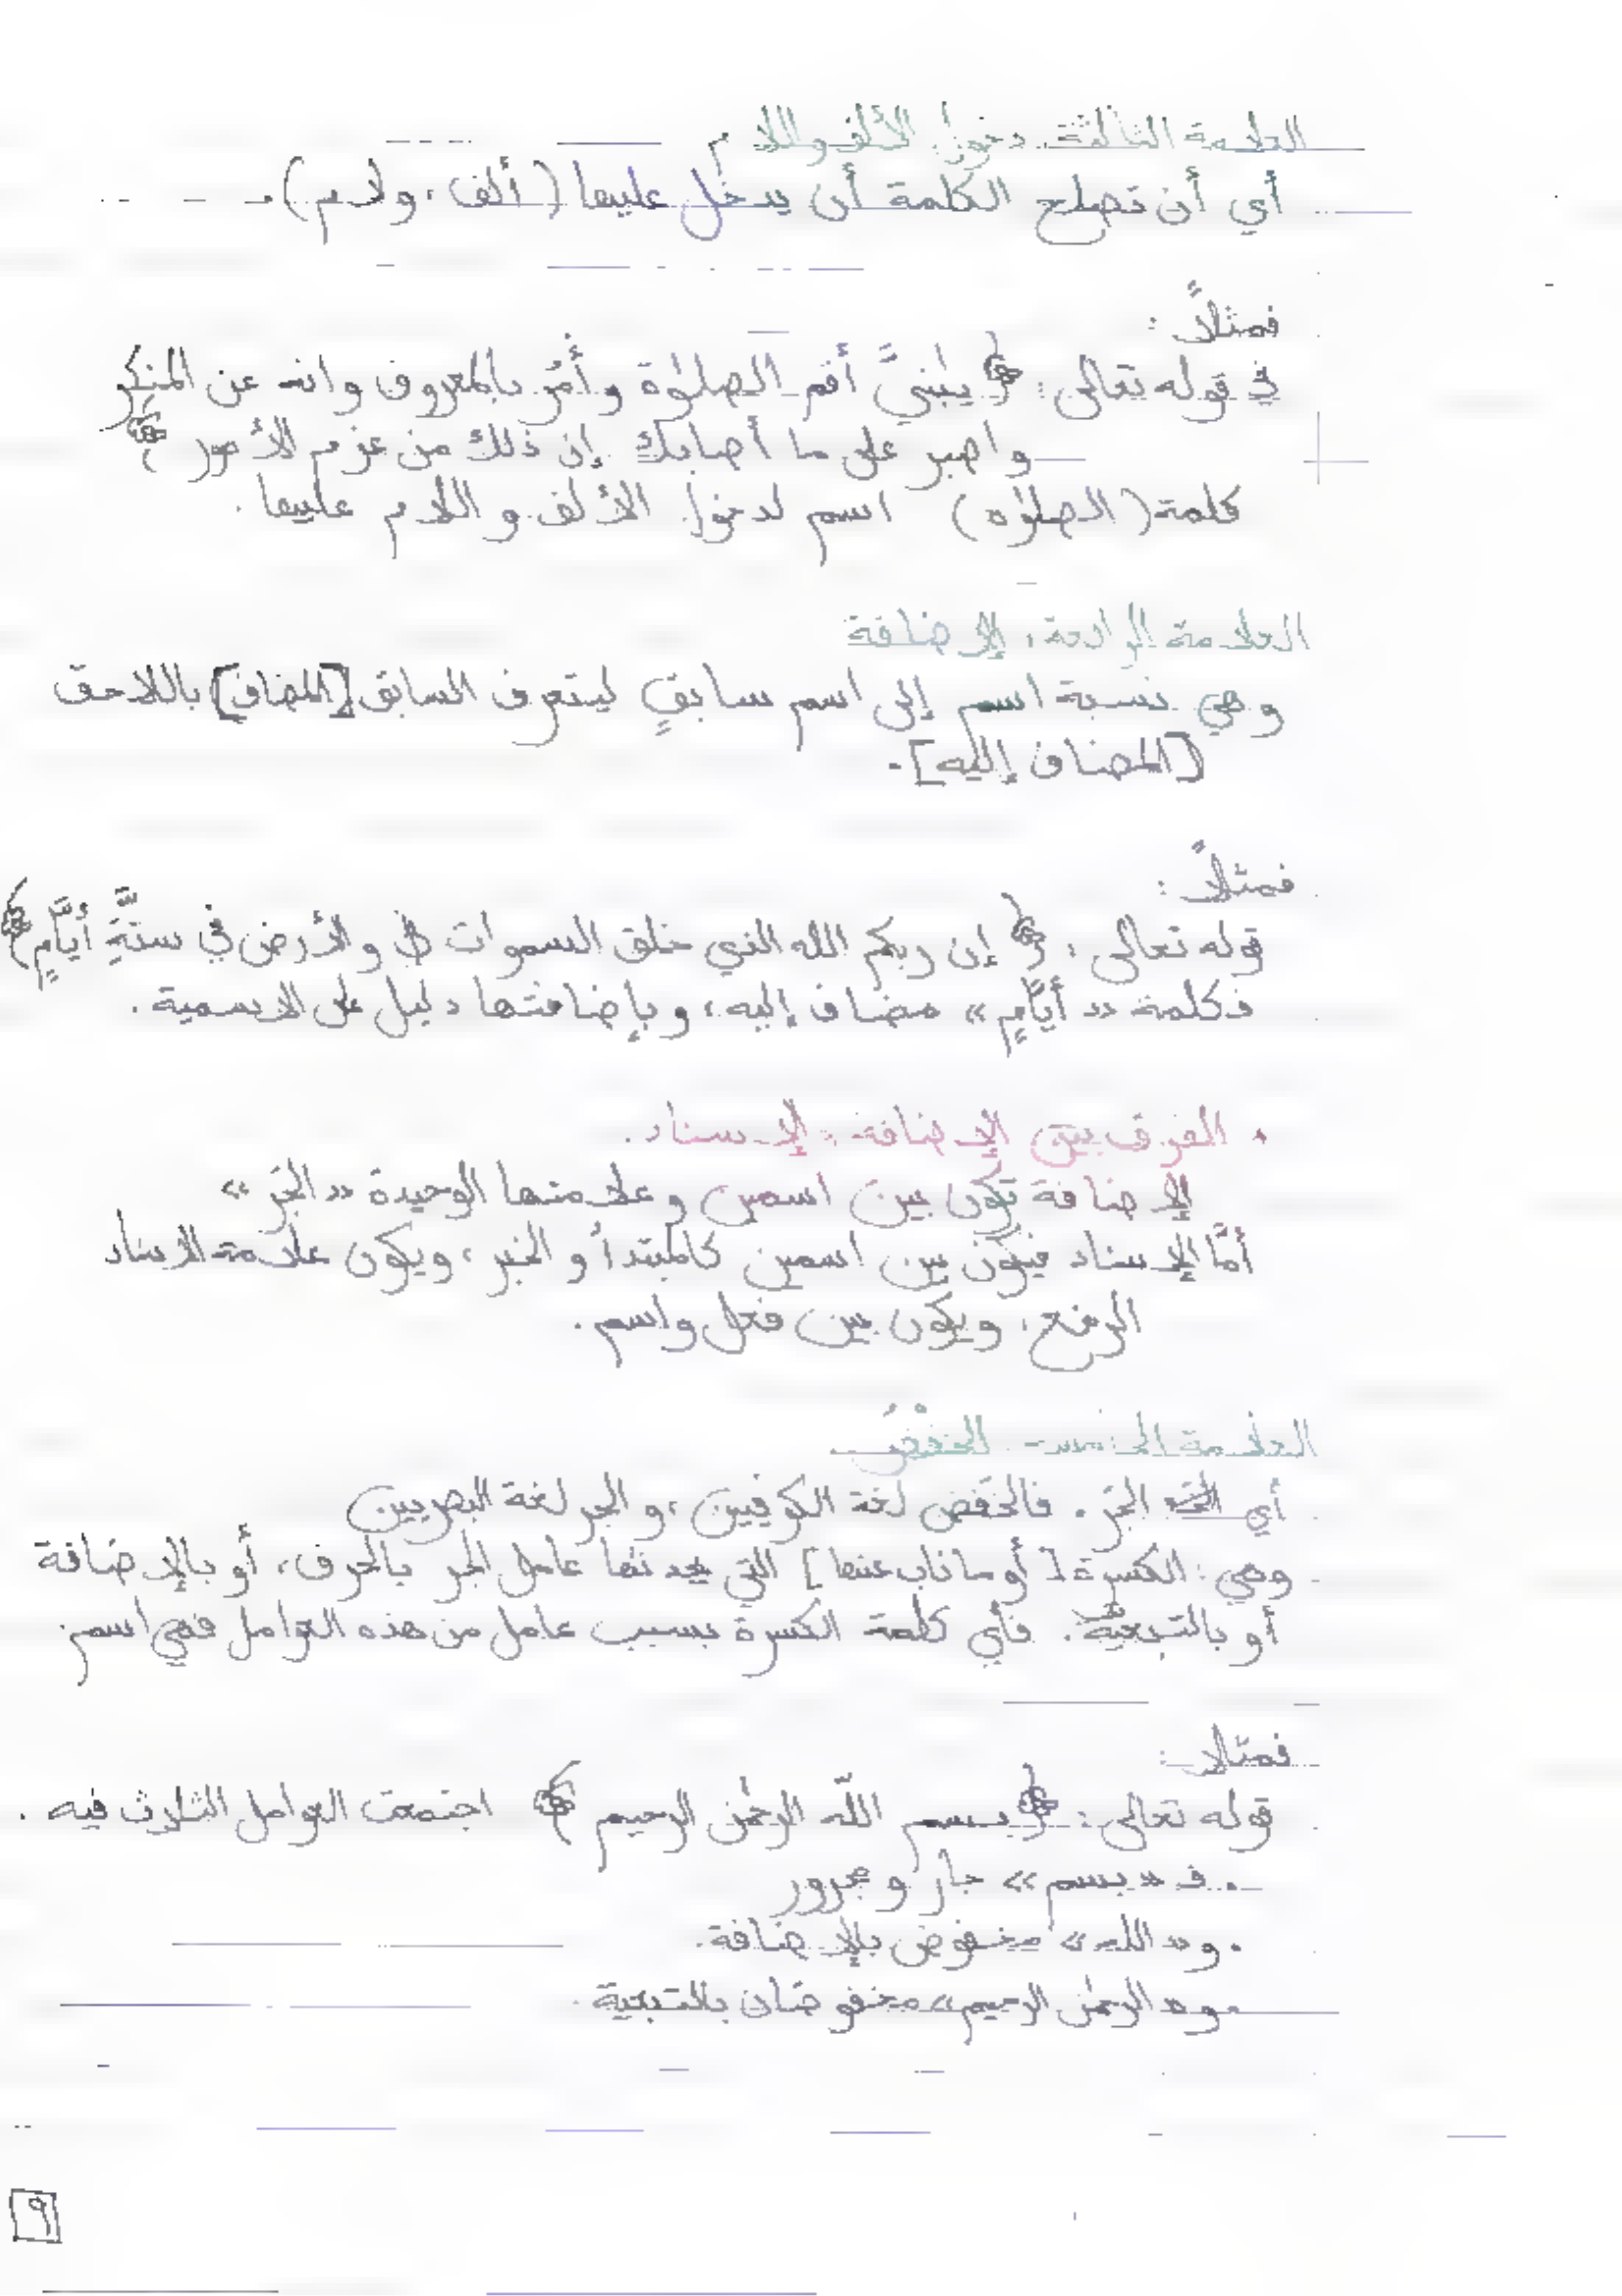 العلامة الثالثة: دخول الألف واللام
أي أن تصلح الكلمة أن يدخل عليها (ألف، ولام).
فمثلاً:
في قوله تعالى: ﴿يٰبنيَّ أقم الصلوٰة وأمُر بالمعروف وانه عن المنكر
واصبر على ما أصابك إن ذلك من عزم الأمور﴾
كلمة (الصلوٰه) اسم لدخول الألف واللام عليها.
العلامة الرابعة: الإضافة
وهي نسبة اسم إلى اسم سابقٍ ليتعرف السابق [المضاف] باللاحق
[المضاف إليه].
فمثلاً:
قوله تعالى: ﴿إن ربكم الله الذي خلق السموات والأرض في ستَّةِ أيَّامٍ﴾
فكلمة «أيَّامٍ» مضاف إليه، وبإضافتها دليل على الاسمية.
• الفرق بين الإضافة: الإسناد.
الإضافة تكون بين اسمين وعلامتها الوحيدة «الجر»
أمَّا الإسناد فيكون بين اسمين كالمبتدأ و الخبر، ويكون علامة الاسناد
الرفع، ويكون بين فعل واسم.
العلامة الخامسة - الخفْضُ
أي الجر. فالخفض لغة الكوفيين، و الجر لغة البصريين
وهي: الكسرة [أو ما ناب عنها] التي يحدثها عامل الجر بالحرف، أو بالإضافة
أو بالتبعية. فأي كلمة الكسرة بسبب عامل من هذه العوامل فهي اسم.
فمثلا:
قوله تعالى: ﴿بسم اللّه الرحمٰن الرحيم﴾ اجتمعت العوامل الثلاث فيه.
• فـ «بسم» جار و مجرور
• و «الله» مخفوض بالإضافة.
• و «الرحمٰن الرحيم» مخفوضان بالتبعية.
٩